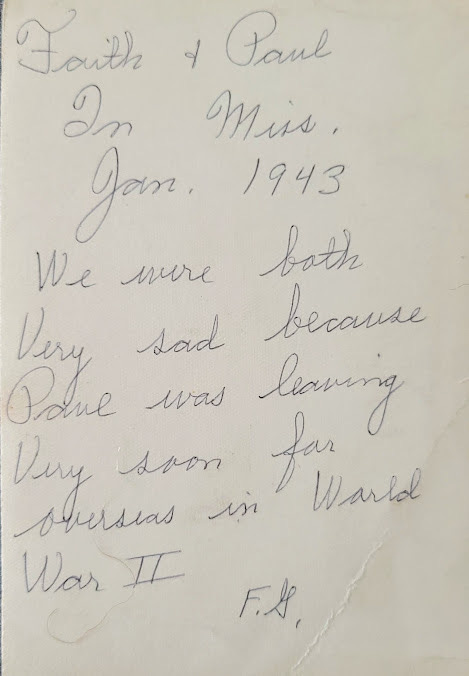 Faith & Paul
In Miss.
Jan. 1943
We were both
Very sad because
Paul was leaving
Very soon for
overseas in World
War II
F.G.